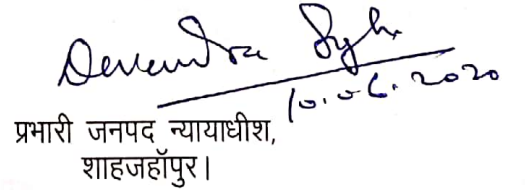 Devendra Singh
10.06.2020
प्रभारी जनपद न्यायाधीश,
शाहजहॉपुर।